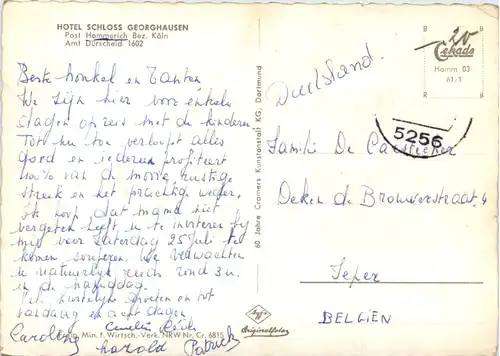 HOTEL SCHLOSS GEORGHAUSEN
Post Hommerich Bez. Köln
Amt Dürscheid 1602
Beste nonkel en Tanten
We zijn hier voor enkele
dagen op reis met de kinderen
Tot nu toe verloopt alles
goed en iedereen profiteert
100% van de mooie rustige
streek en het prachtig weder.
Ik hoop dat mama niet
vergeten heeft u te inviteren bij
mij voor Zaterdag 25 juli te
komen souperen. We verwachten
u natuurlijk reeds rond 3 u.
in de namiddag.
hartelijke groeten en tot
zaterdag in acht dagen.
Caroline
Harold
Patrick
Min. f. Wirtsch.-Verk. NRW Nr. Cr. 6815
60 Jahre Cramers Kunstanstalt KG, Dortmund
Duitsland.
Cekade
Hamm 03
61/1
5256
Familie De Caestecker
Deken de Brouwerstraat 4
Ieper
BELGIEN
Agfa
Originalfoto